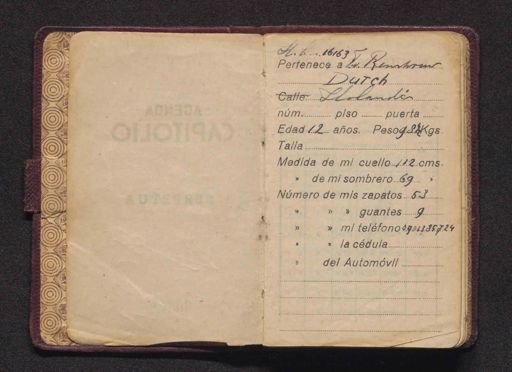 AGENDA
CAPITOLIO
PERPETUA
16163
Pertenece a
Dutch
Calle Holandés
núm. piso puerta
Edad 12 años. Peso Kgs.
Talla
Medida de mi cuello 112 cms.
» de mi sombrero 69 »
Número de mis zapatos 53
» » » guantes 9
» » mi teléfono
» » la cédula
» del Automóvil